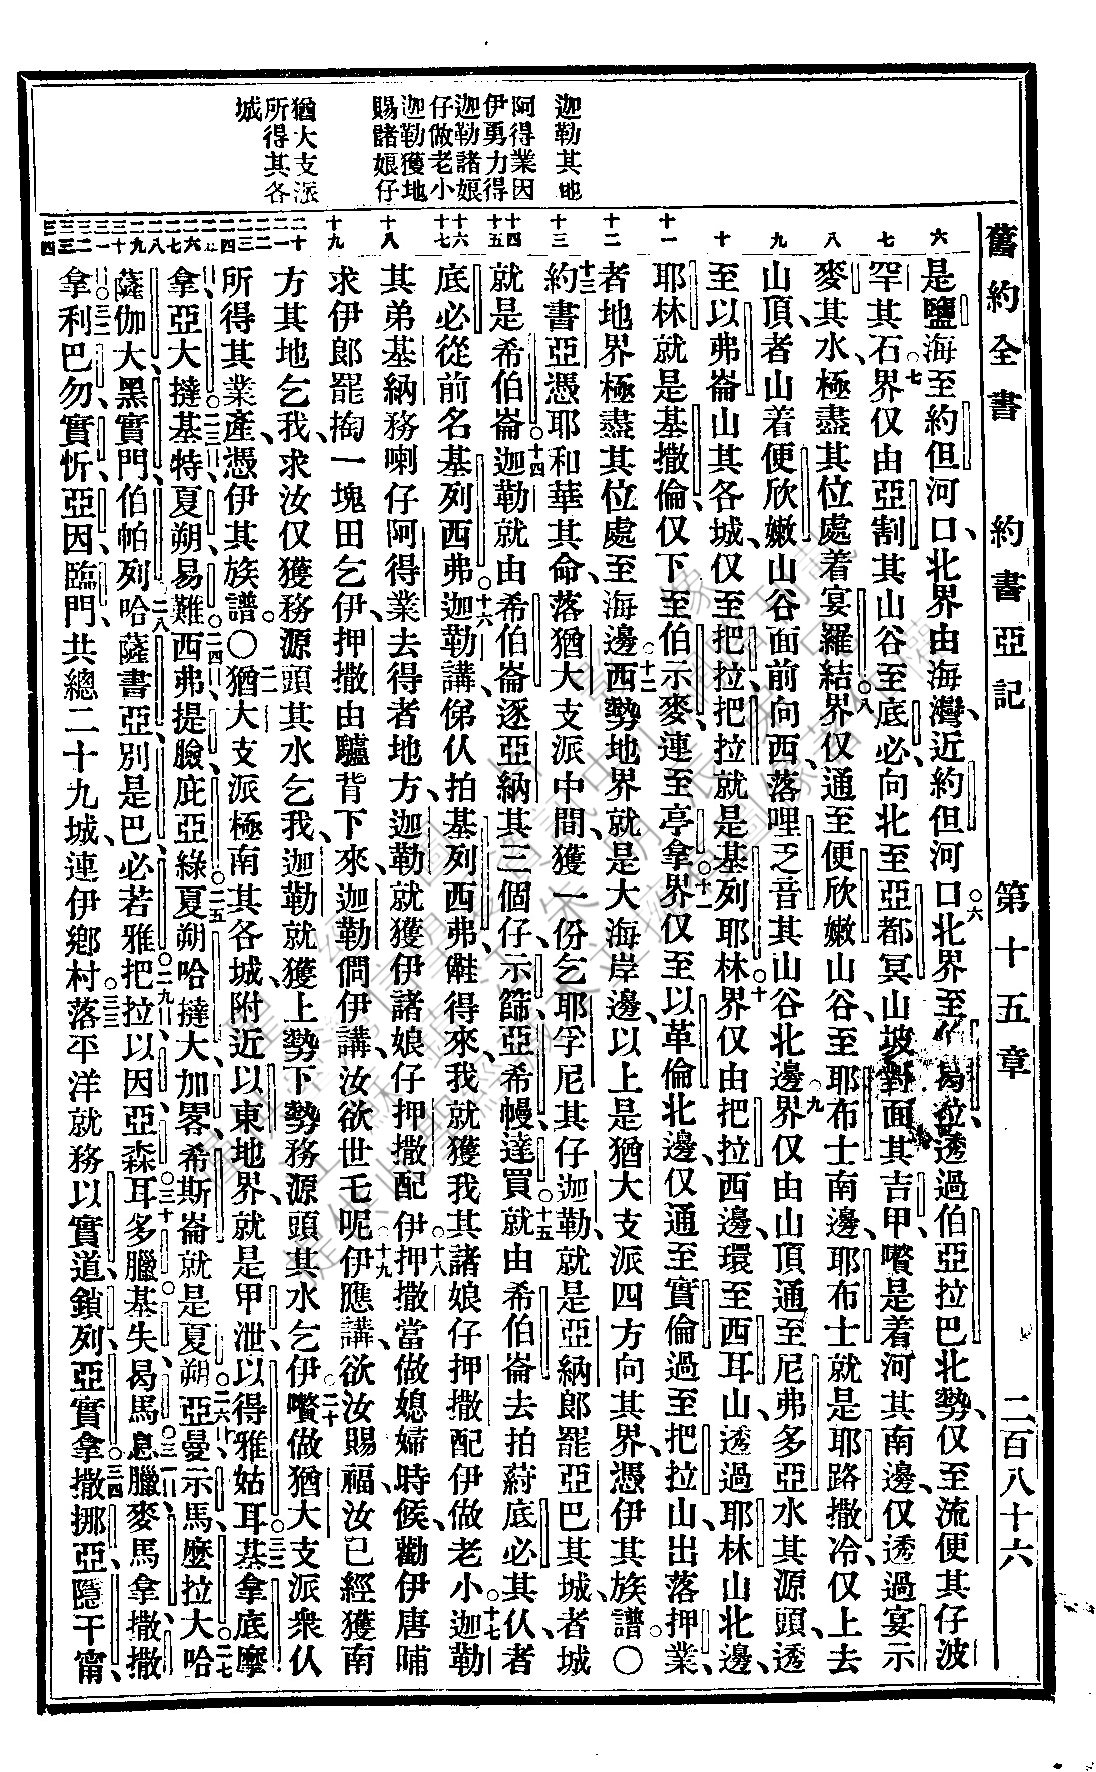 舊約全書 約書亞記 第十五章 二百八十六
迦勒其地
阿得業因
伊勇力得
迦勒諸娘
仔做老小
迦勒獲地
賜諸娘仔
猶大支派
所得其各
城
六 七 八 九 十 十一 十二 十三 十四 十五 十六 十七 十八 十九 二十 二一 二二 二三 二四 二五 二六 二七 二八 二九 三十 三一 三二 三三 三四
是鹽海至約但河口、北界由海灣近約但河口、○六北界至伯曷拉、透過伯亞拉巴北勢、仅至流便其仔波
罕其石、○七界仅由亞割其山谷至底必、向北至亞都冥山坡對面其吉甲、嚽是着河其南邊、仅透過宴示
麥其水、極盡其位處着宴羅結、○八界仅通至便欣嫩山谷、至耶布士南邊、耶布士就是耶路撒冷、仅上去
山頂、者山着便欣嫩山谷面前向西、落哩乏音其山谷北邊、○九界仅由山頂通至尼弗多亞水其源頭、透
至以弗崙山其各城、仅至把拉、把拉就是基列耶林、○十界仅由把拉西邊環至西耳山、透過耶林山北邊、
耶林就是基撒倫、仅下至伯示麥、連至亭拿、○十一界仅至以革倫北邊、仅通至實倫、過至把拉山、出落押業、
者地界極盡其位處至海邊、○十二西勢地界就是大海岸邊、以上是猶大支派四方向其界、憑伊其族譜。○
十三約書亞憑耶和華其命、落猶大支派中間、獲一份乞耶孚尼其仔迦勒、就是亞納郎罷亞巴其城、者城
就是希伯崙。○十四迦勒就由希伯崙逐亞納其三個仔、示篩、亞希幔、達買、○十五就由希伯崙去拍蒔底必其仈、者
底必從前名基列西弗。○十六迦勒講、俤仈拍基列西弗、儺得來、我就獲我其諸娘仔押撒配伊做老小。○十七迦勒
其弟基納務喇仔阿得業、去得者地方、迦勒就獲伊諸娘仔押撒配伊、○十八押撒當做媳婦時候、勸伊唐晡
求伊郎罷掏一塊田乞伊、押撒由驢背下來、迦勒問伊講、汝欲世乇呢、○十九伊應講、欲汝賜福、汝已經獲南
方其地乞我、求汝仅獲務源頭其水乞我、迦勒就獲上勢下勢務源頭其水乞伊。○二十嚽做猶大支派衆仈
所得其業產、憑伊其族譜。○二一猶大支派極南其各城、附近以東地界、就是甲泄、以得、雅姑耳、○二二基拿、底摩
拿、亞大撻、○二三基特、夏朔、易難、○二四西弗、提臉、庇亞綠、○二五夏朔哈撻大、加畧希斯崙、就是夏朔、○二六亞曼、示馬、麼拉大、○二七哈
薩伽大、黑實門、伯帕列、○二八哈薩書亞、別是巴、必若雅、○二九把拉、以因、亞森、○三十耳多臘、基失、曷馬、○三一息臘、麥馬拿、撒撒
拿、○三二利巴勿、實忻、亞因、臨門、共總二十九城、連伊鄉村。○三三落平洋就務以實道、鎖列、亞實拿、○三四撒挪亞、隱干甯、